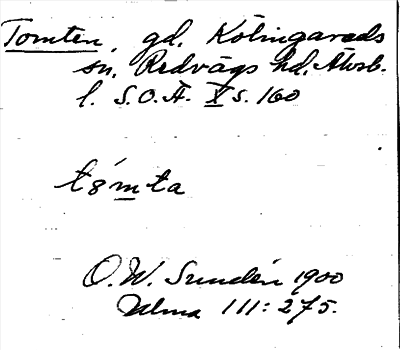 Tomten, gd, Kölingareds
sn, Redvägs hd, Älvsb.
l. S.O.Ä. X s. 160
t8́mta
O. W. Sundén 1900
Ulma 111:275.